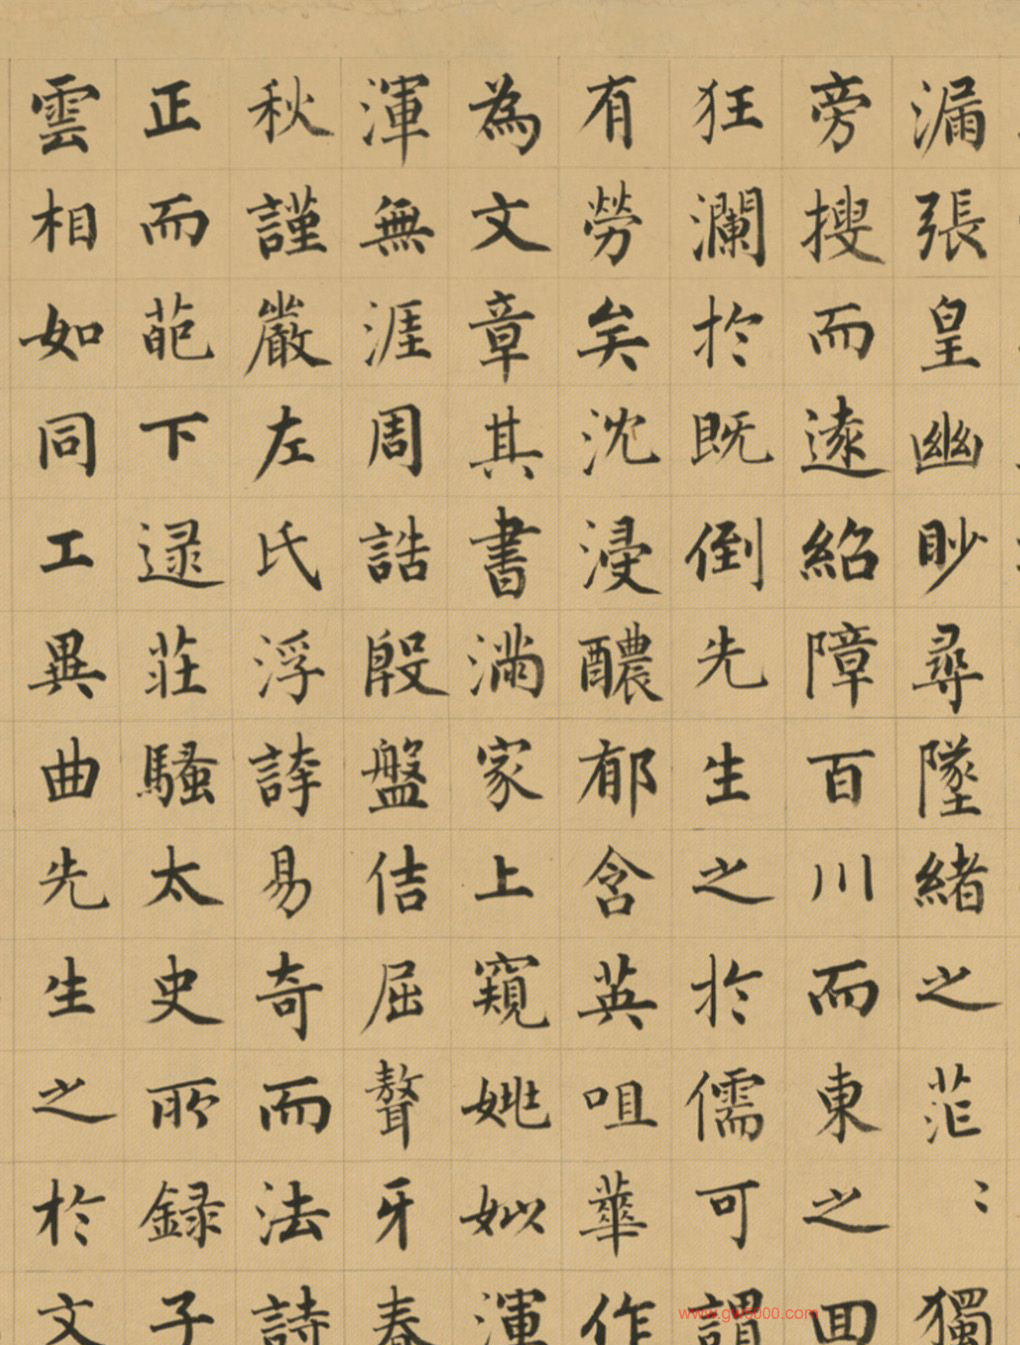 漏張皇幽眇尋墜緒之茫〻獨
旁搜而遠紹障百川而東之回
狂瀾於既倒先生之於儒可謂
有勞矣沈浸醲郁含英咀華作
為文章其書滿家上窺姚姒渾
渾無涯周誥殷盤佶屈聱牙春
秋謹嚴左氏浮誇易奇而法詩
正而葩下逮莊騷太史所録子
雲相如同工異曲先生之於文
www.gwj5000.com